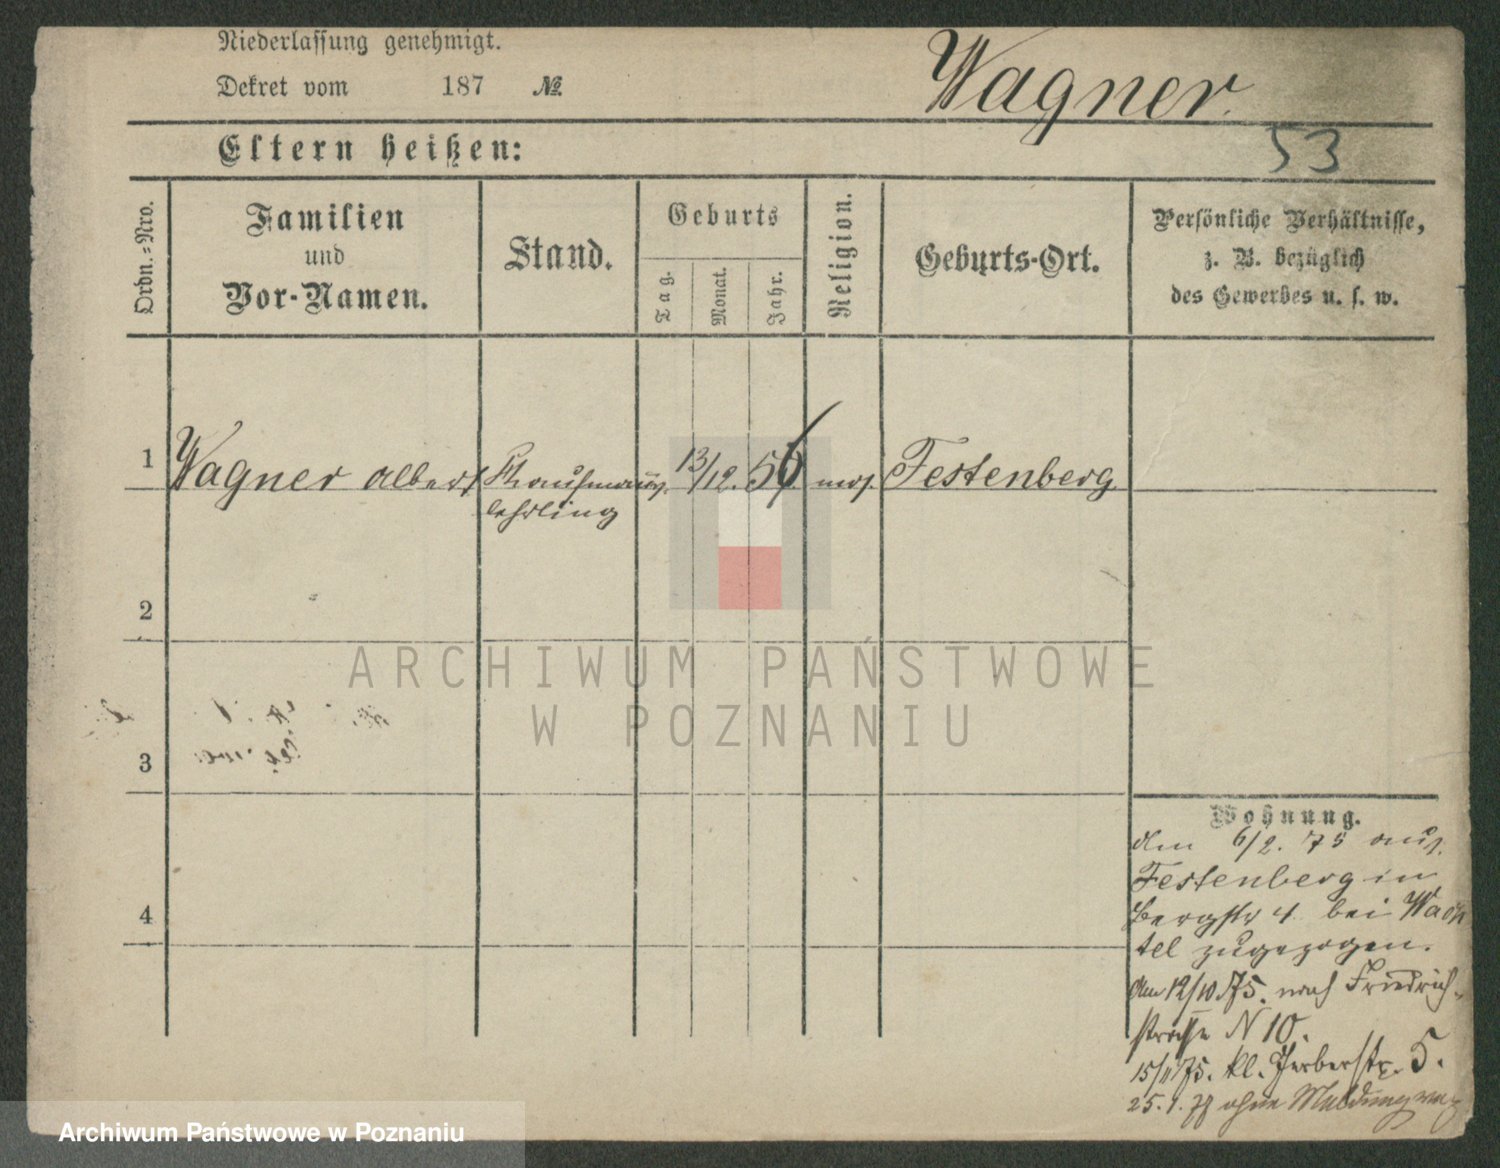 Niederlassung genehmigt.
Dekret vom 187 №
Wagner.
53
Eltern heißen:
Ordn.-Nro.
Familien
und
Vor-Namen.
Stand.
Geburts
Tag.
Monat.
Jahr.
Religion.
Geburts-Ort.
Persönliche Verhältnisse,
z. B. bezüglich
des Gewerbes u. s. w.
1 Wagner Albert Kaufmann 13/12. 56 mos. Festenberg
lehrling
2
3
4
ARCHIWUM PAŃSTWOWE
W POZNANIU
Wohnung.
Am 6/2. 75 aus
Festenberg in
Bergstr 4 bei Wach
tel zugezogen.
Am 12/10 75. nach Friedrich-
strasse N 10.
15/11 75. kl. Gerberstr. 5.
25. 1. ohne Meldung
Archiwum Państwowe w Poznaniu